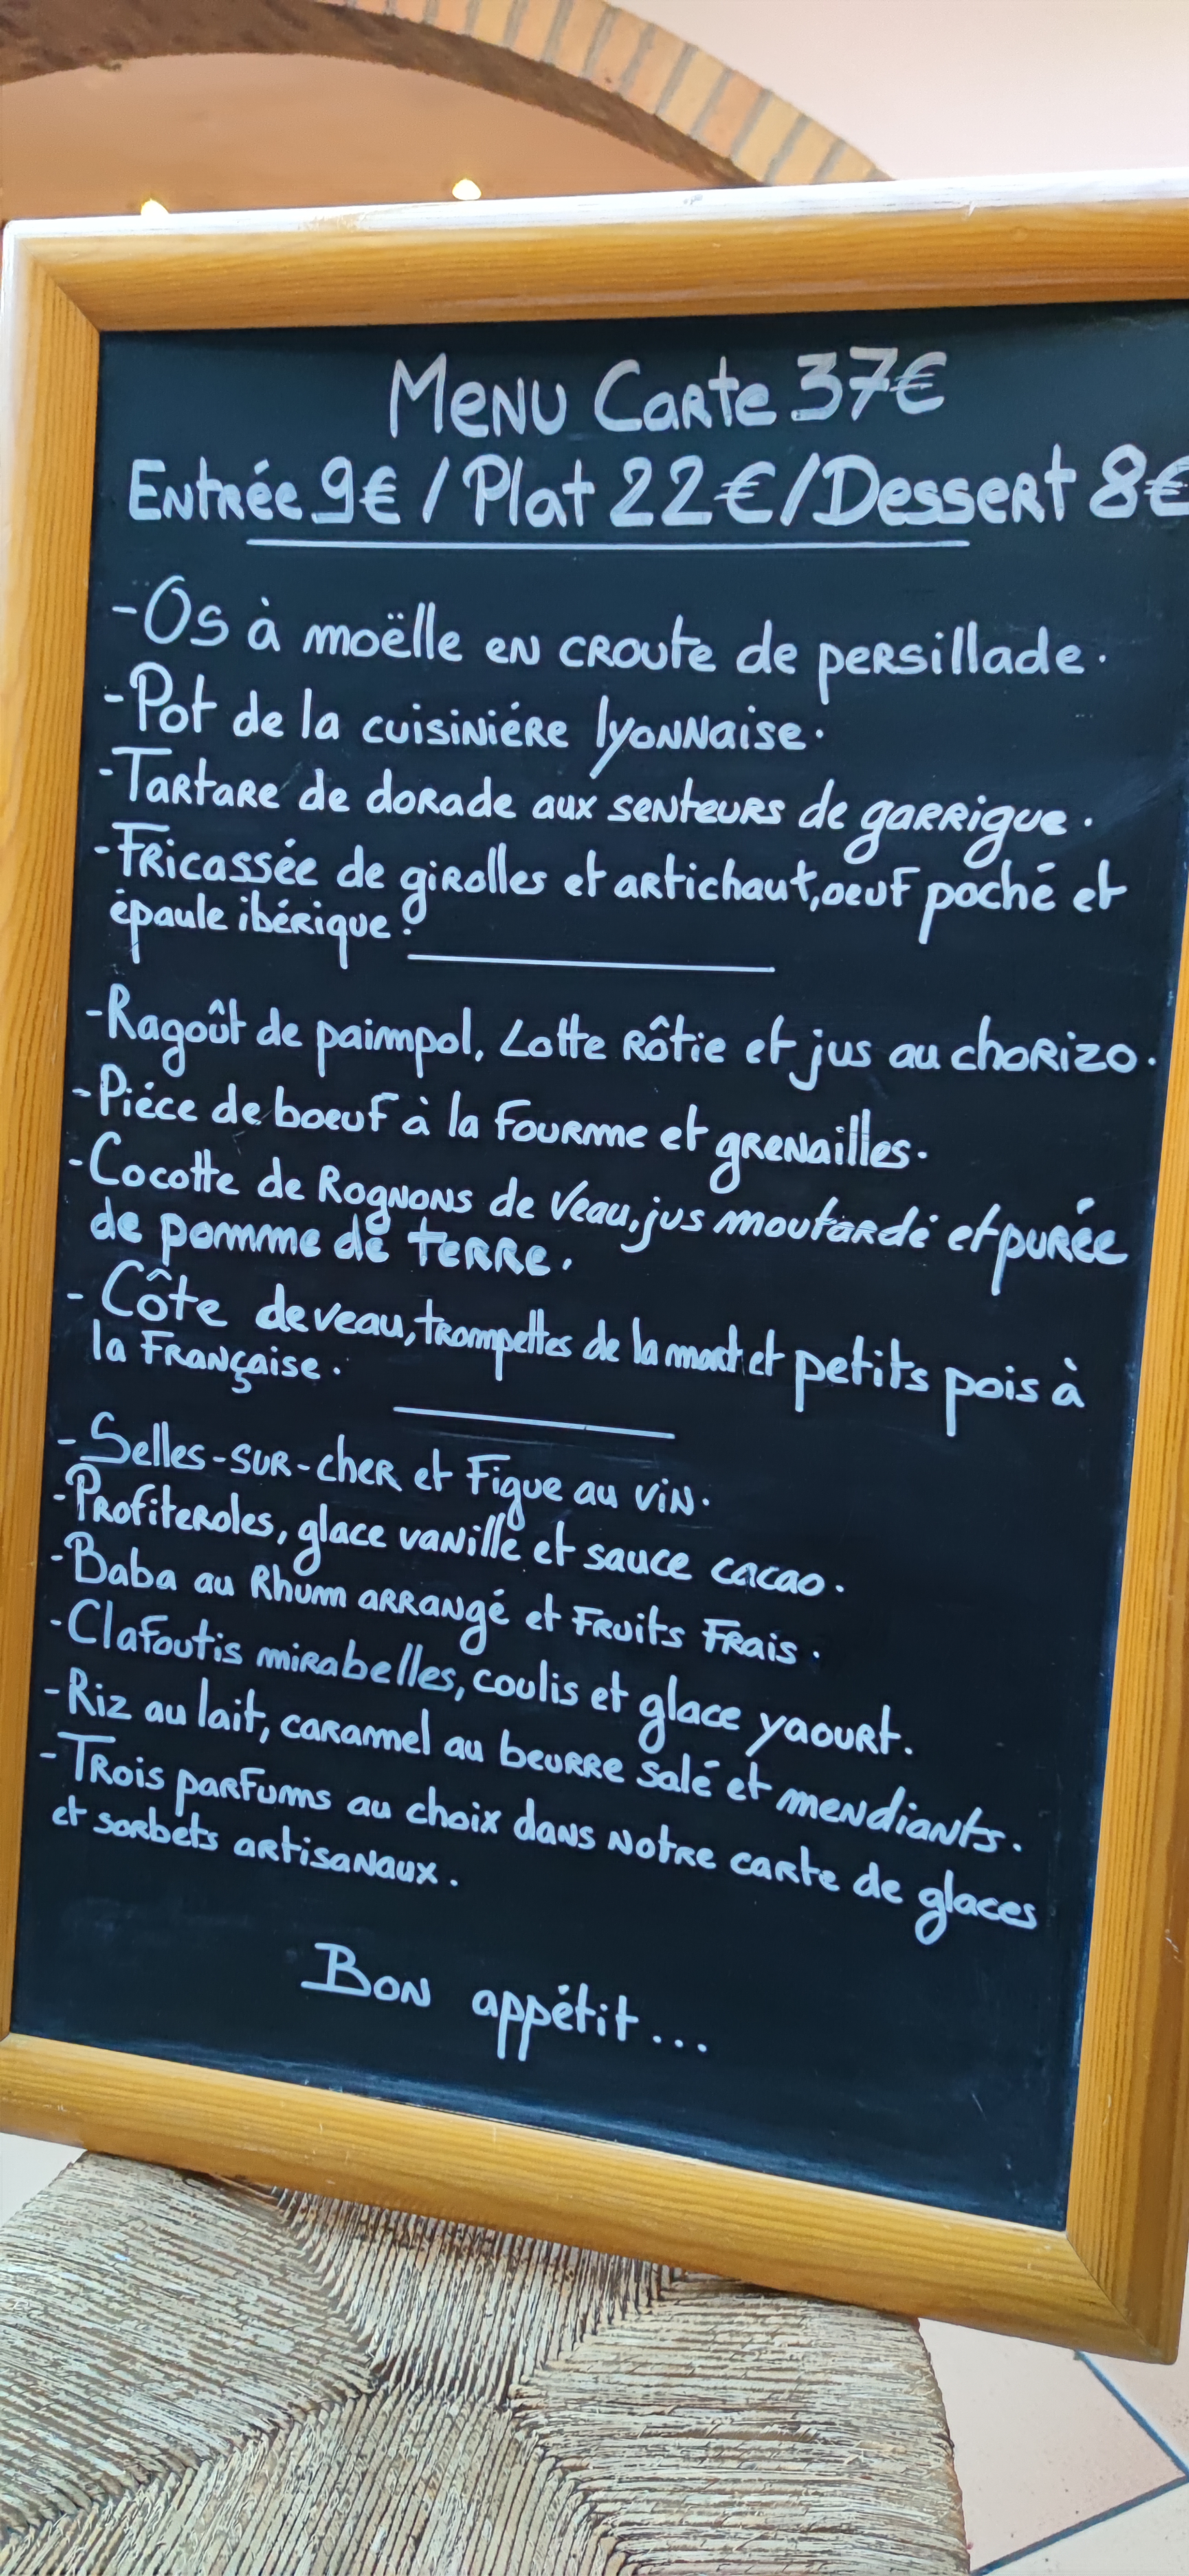 Menu Carte 37€
Entrée 9€ / Plat 22€ / Dessert 8€
- Os à moëlle en croute de persillade.
- Pot de la cuisiniére lyonnaise.
- Tartare de dorade aux senteurs de garrigue.
- Fricassée de girolles et artichaut, oeuf poché et
épaule ibérique.
- Ragoût de paimpol, Lotte rôtie et jus au chorizo.
- Piéce de boeuf à la fourme et grenailles.
- Cocotte de Rognons de Veau, jus moutardé et purée
de pomme de terre.
- Côte de veau, trompettes de la mort et petits pois à
la Française.
- Selles-sur-cher et Figue au vin.
- Profiteroles, glace vanille et sauce cacao.
- Baba au Rhum arrangé et Fruits Frais.
- Clafoutis mirabelles, coulis et glace yaourt.
- Riz au lait, caramel au beurre salé et mendiants.
- Trois parfums au choix dans notre carte de glaces
et sorbets artisanaux.
Bon appétit...